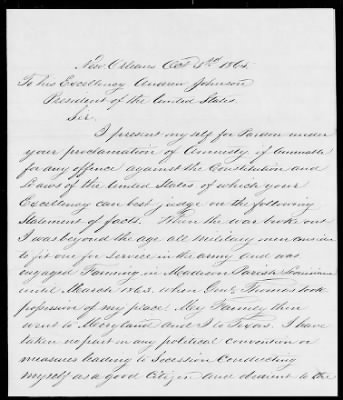 New Orleans Oct 4th 1865
To his Excellency Andrew Johnson
President of the United States
Sir.
I present my self for Pardon under
your proclamation of Amnesty if Amenable
for any offence against the Constitution and
Laws of the United States of which your
Excellency can best judge on the following
Statement of facts. When the war broke out
I was beyond the age all military men consider
to fit one for service in the army and was
engaged Farming in Madison Parish Louisiana
until March 1863. when Genl Thomas took
possession of my place. My Family then
went to Maryland and I to Texas. I have
taken no part in any political convention or
measures leading to Secession Conducting
myself as a good Citizen and obedient to the